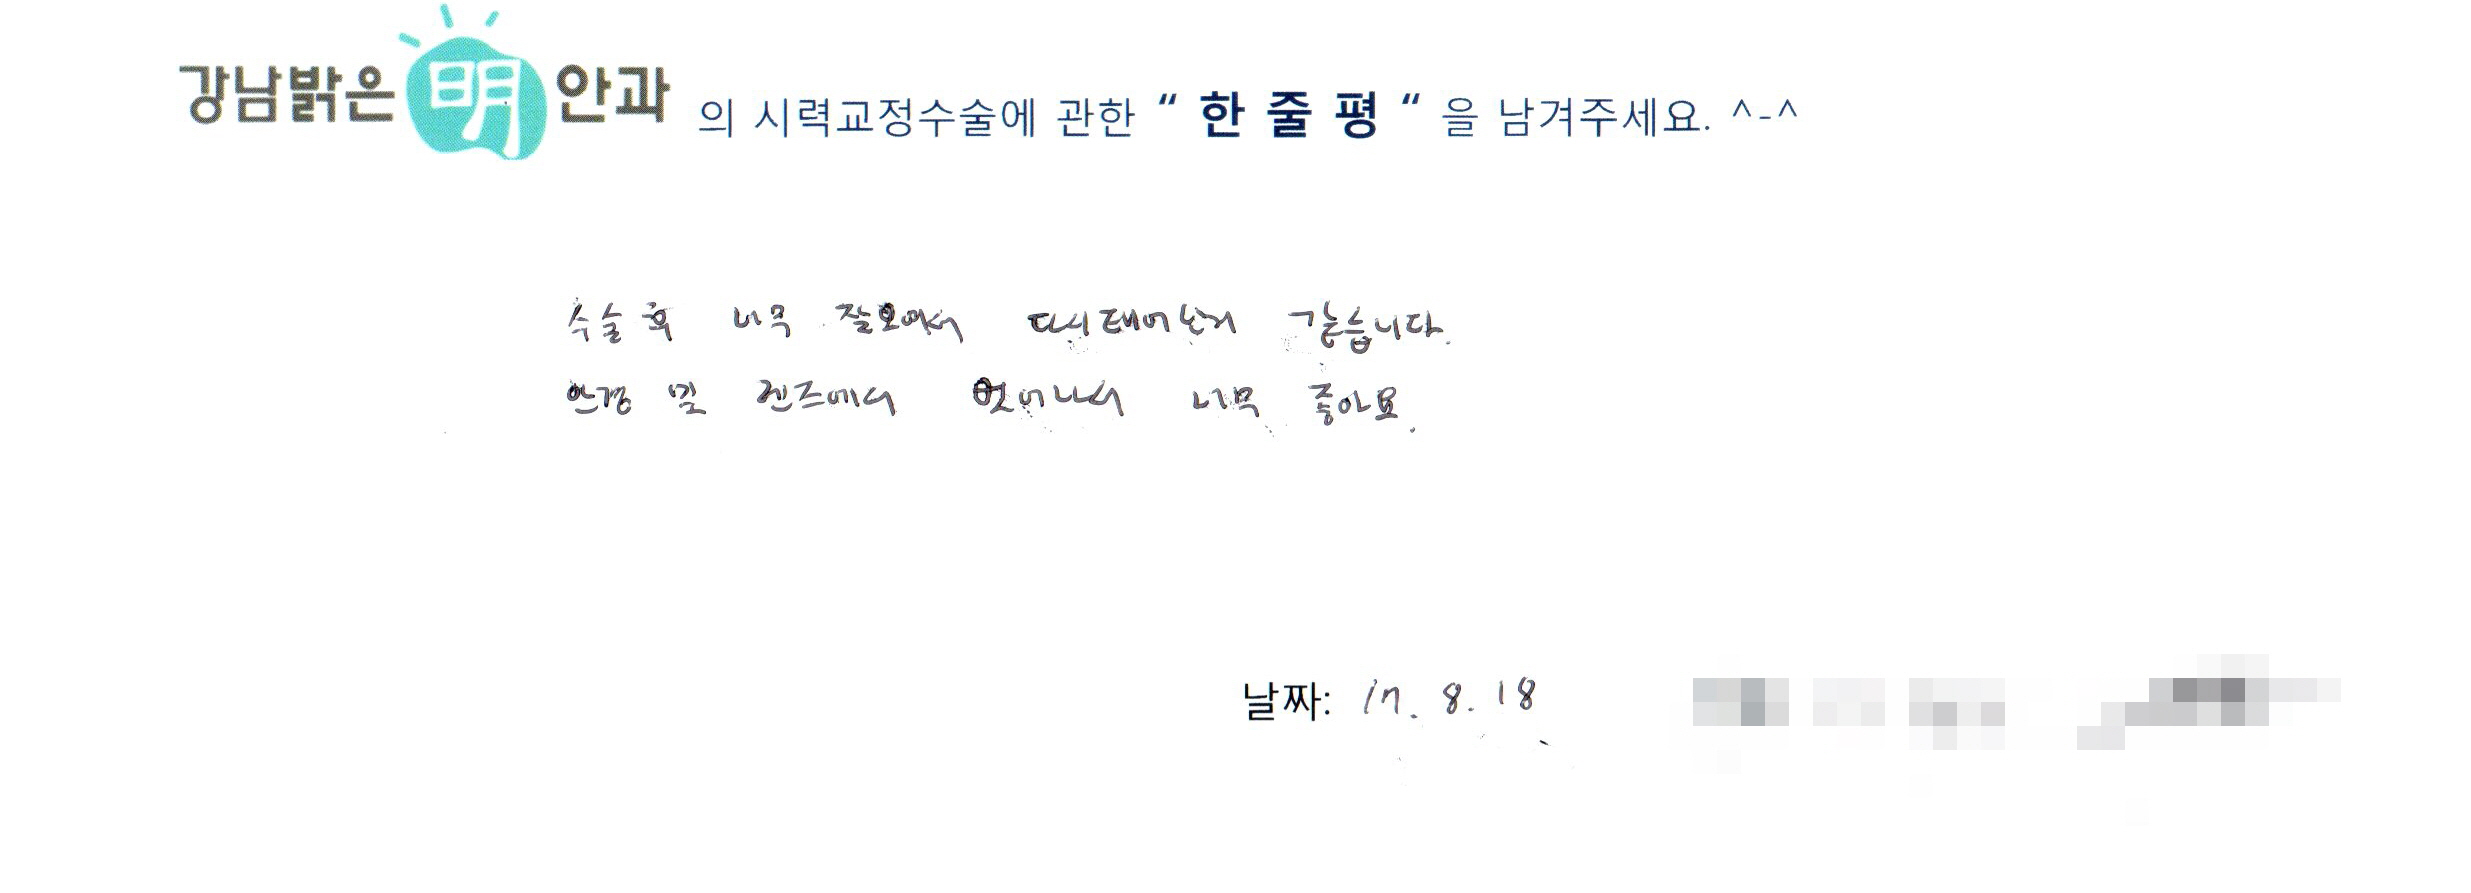 강남밝은明안과 의 시력교정수술에 관한 “ 한 줄 평 “ 을 남겨주세요. ^-^
수술 후 너무 잘보여서 다시태어난거 같습니다.
안경 및 렌즈에서 벗어나서 너무 좋아요.
날짜: 17. 8. 18